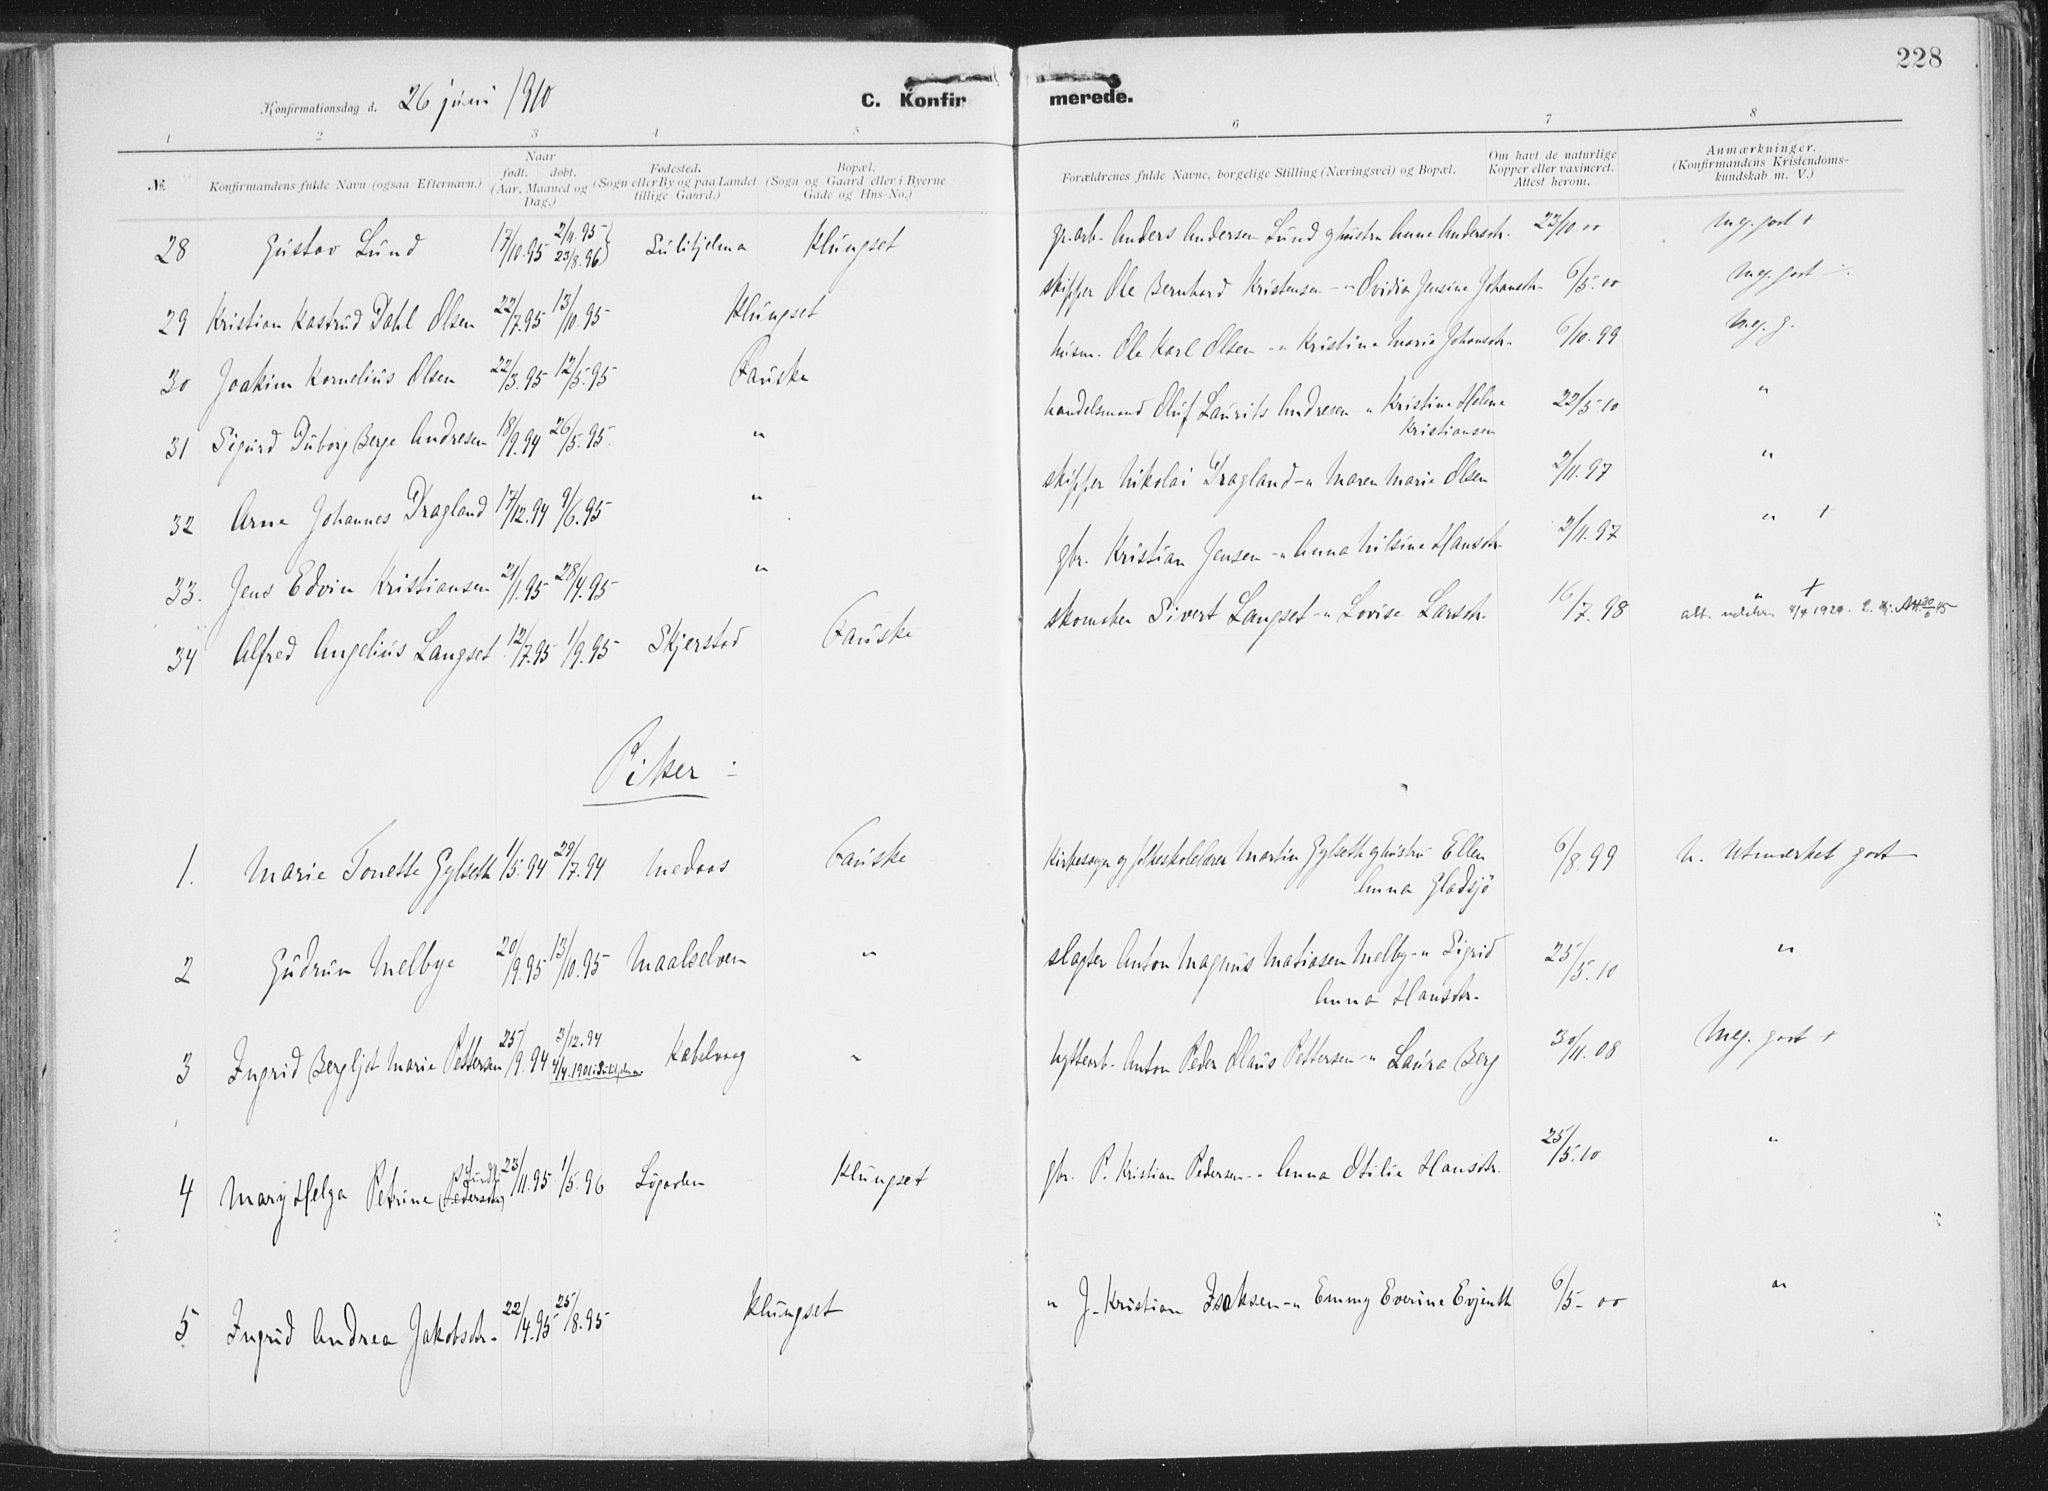 228
Konfirmationsdag d. 26 juni 1910
C. Konfirmerede.
1 2 3 4 5 6 7 8
№. Konfirmandens fulde Navn (ogsaa Efternavn.) Naar født. døbt. (Aar, Maaned og Dag.) Fødested. (Sogn eller By og paa Landet tillige Gaard.) Bopæl. (Sogn og Gaard eller i Byerne Gade og Hus-No.) Forældrenes fulde Navne, borgelige Stilling (Næringsvei) og Bopæl. Om havt de naturlige Kopper eller vaxineret. Attest herom. Anmærkninger. (Konfirmandens Kristendomskundskab m. V.)
28 Gustav Lund 17/10.95 2/11.95 23/8.96 Sulitjelma Klungset gr.arb. Anders Andersen Lund og hustru Anne Andersdtr. 23/10 00 Meg. godt +
29 Kristian Kastrud Dahl Olsen 22/7.95 13/10.95 Klungset skipper Ole Bernhard Kristensen -"- Ovidia Jensine Johansdtr. 6/5.00 Meg. godt
30 Joakim Kornelius Olsen 22/3.95 12/5.95 Fauske husm. Ole Karl Olsen -" Kristine Marie Johansdtr. 6/10.99 Meg. g.
31 Sigurd Duborg Berge Andresen 18/9.94 26/5.95. " handelsmand Oluf Laurits Andresen " Kristine Helene Kristiansen 22/5.10 "
32 Arne Johannes Dragland 17/12.94 9/6.95 " skipper Nikolai Dragland -" Maren Marie Olsen 2/11.97 "
33. Jens Edvin Kristiansen 21/1.95 28/4.95 " gbr. Kristian Jensen -" Anna Nilsine Hansdtr. 2/11.97 " +
34 Alfred Angelius Langset 12/7.95 1/9.95 Skjerstad Fauske skomaker Sivert Langset -" Lovise Larsdtr. 16/7.98 + att. 1920.
Piker :
1. Marie Tonette Gylseth 1/5.94 29/7.94 Medaas Fauske Kirkesanger og folkeskolelærer Martin Gylseth og hustru Ellen Anna Gladsjö 6/8.99 N. Utmærket godt
2 Gudrun Melbye 20/9.95 13/10.95 Maalselven " slagter Anton Magnus Matiasen Melby -" Sigrid Anna Hansdtr. 25/5.10 "
3 Ingrid Bergljot Marie Pettersen 25/9.94 3/12.94 4/4.1901 i Sulitjelma Kabelvaag " hyttearb. Anton Peder Olaus Pettersen -" Laura Berg 30/11.08 Meg. godt +
4 Mary Helga Petrine (Pedersen) 23/11.95 1/5.96 Løgavlen Klungset gbr. P. Kristian Pedersen -" Anna Otilie Hansdtr. 25/5.10 "
5 Ingrid Andrea Jakobsdtr. 22/4.95 25/8.95 Klungset " J. Kristian Isaksen -" Emmy Everine Evjenth 6/5.00 "